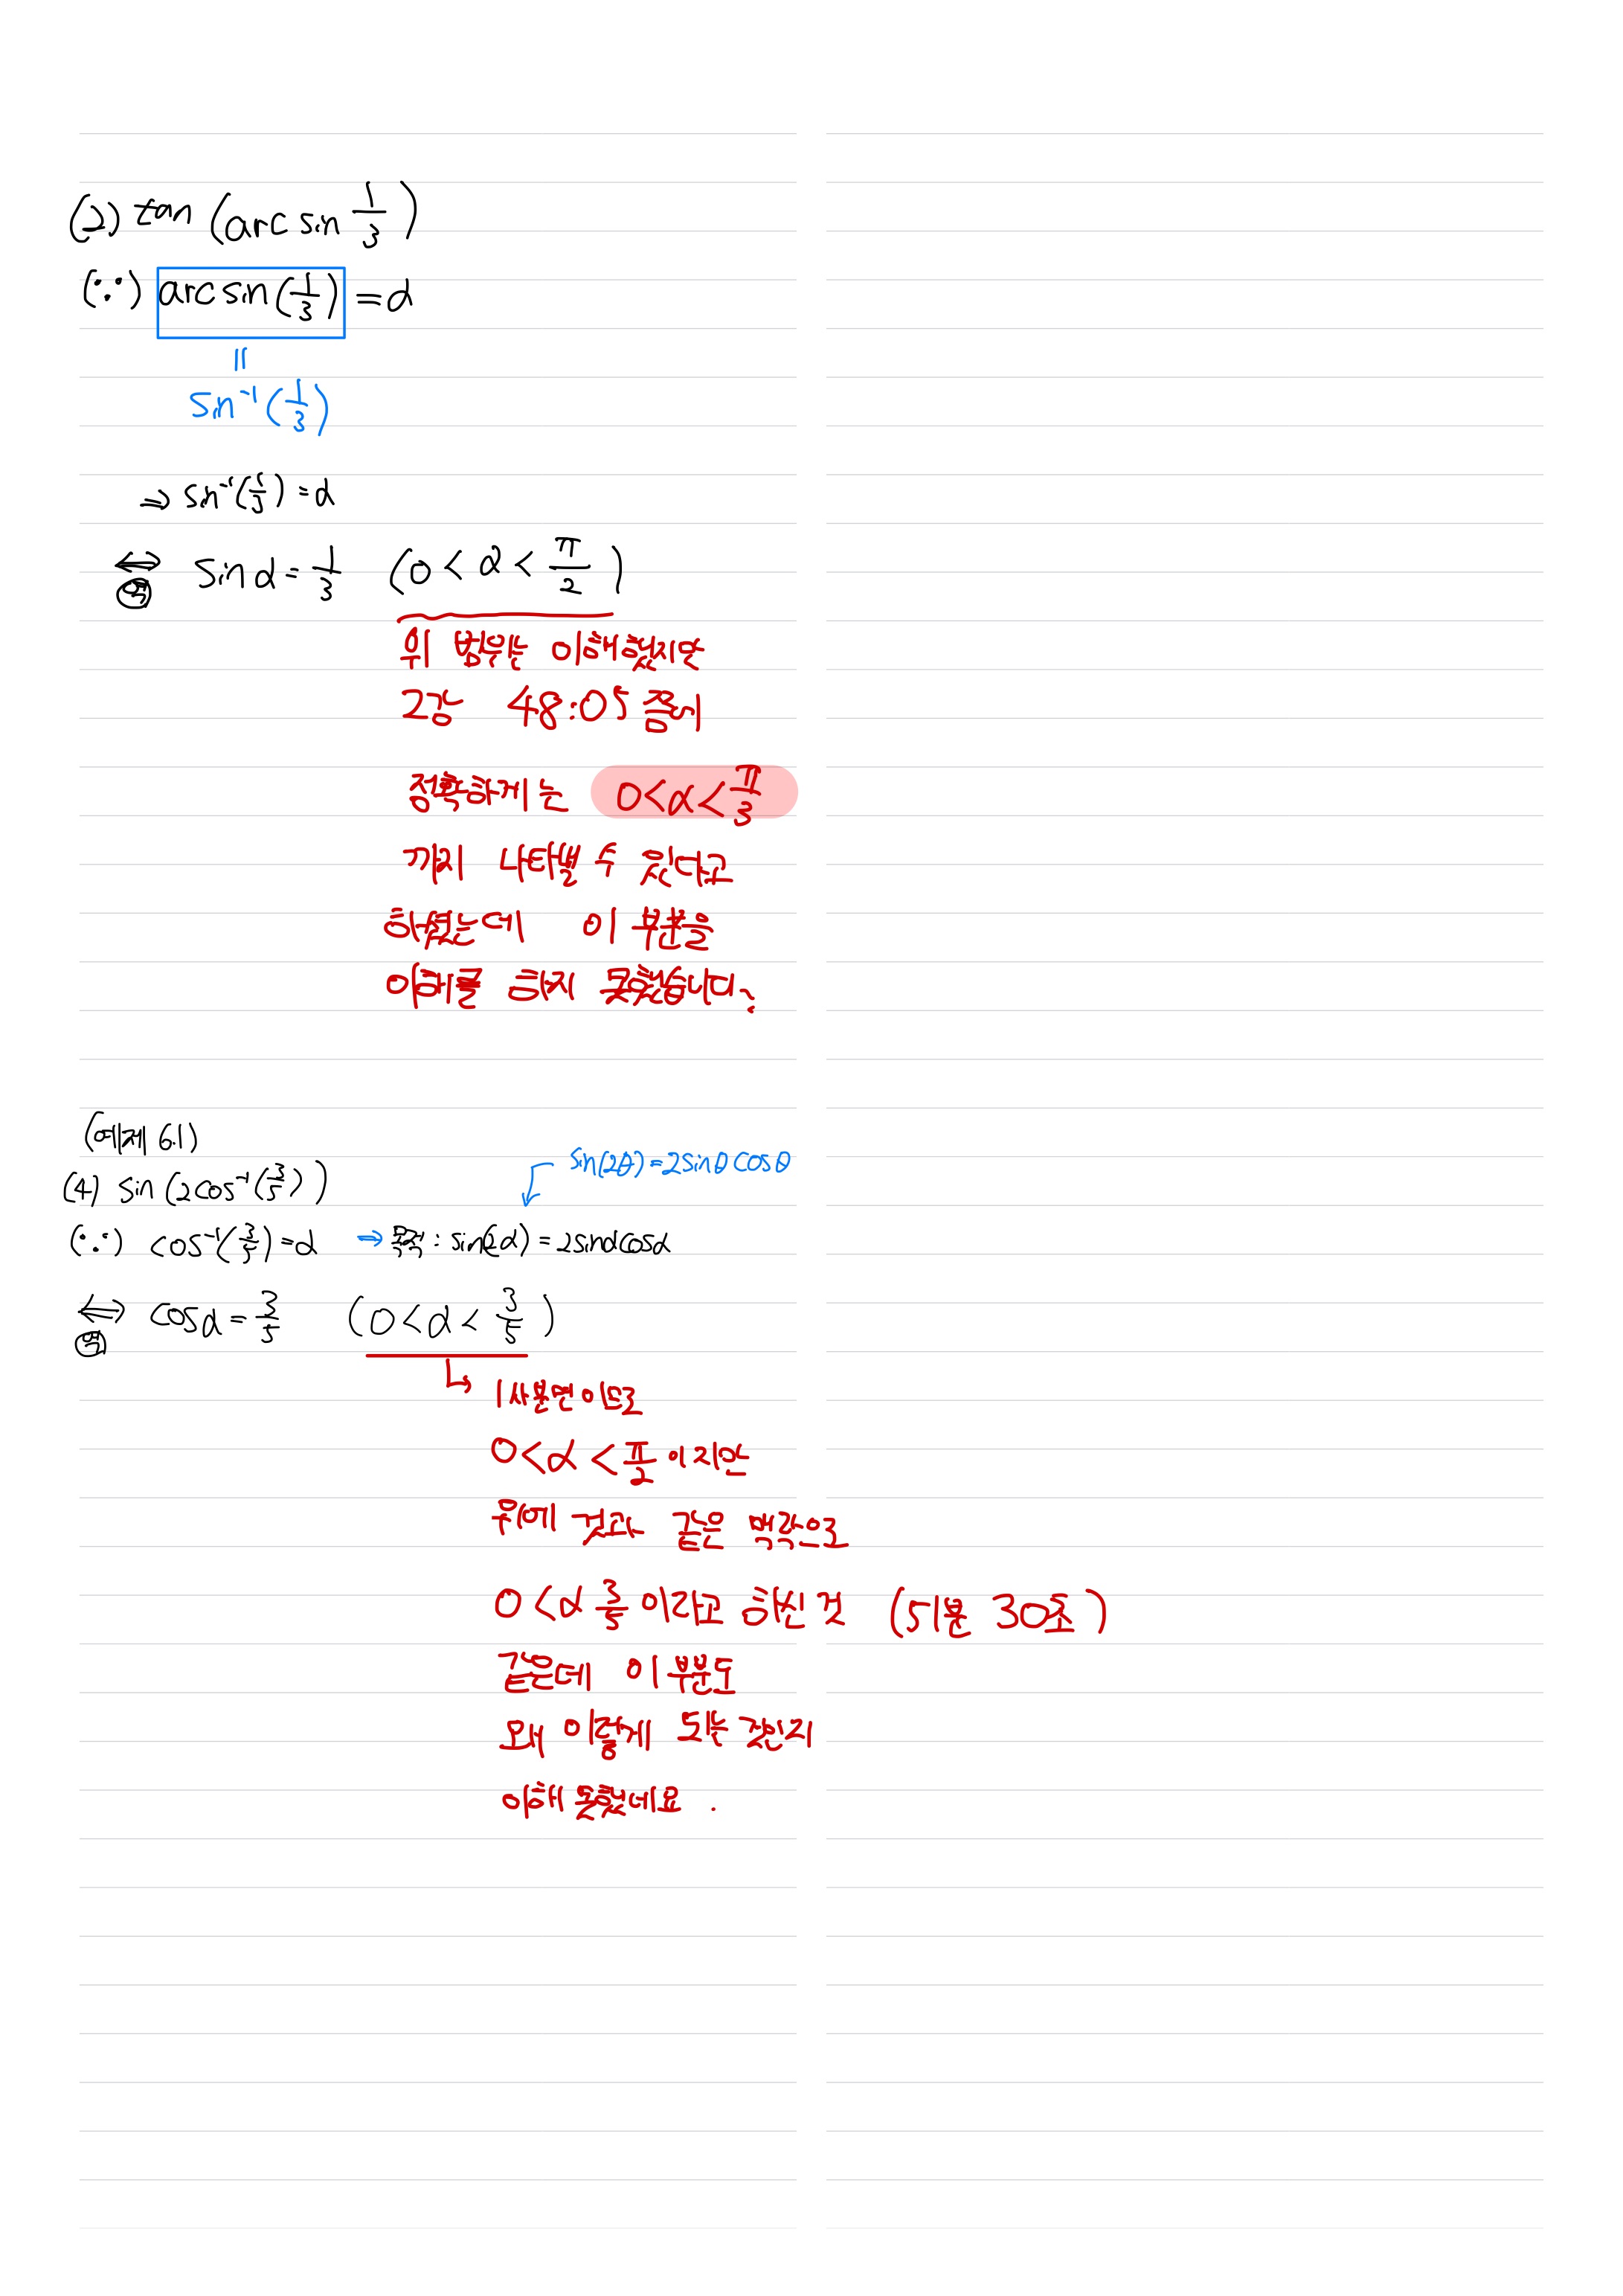 (2) tan (arcsin 1/3)
(∵) arcsin(1/3) = α
||
sin⁻¹(1/3)
⇒ sin⁻¹(1/3) = α
⇔ sinα = 1/3 (0 < α < π/2)
위 범위는 이해했지만
2강 48:05 쯤에
정확하게는 0<α<π/3
까지 나타낼 수 있다고
하셨는데 이 부분을
이해를 하지 못했습니다.
(예제 6.1)
sin(2θ) = 2sinθcosθ
(4) sin(2cos⁻¹(3/5))
(∵) cos⁻¹(3/5) = α ⇒ 목적 : sin(2α) = 2sinαcosα
⇔ cosα = 3/5 (0<α<3/5)
1사분면이므로
0<α<π/2 이지만
위에 것과 같은 맥락으로
0<α 3/5 이라고 하신 것 (51분 30초)
같은데 이 부분도
왜 이렇게 되는 것인지
이해 못했네요.